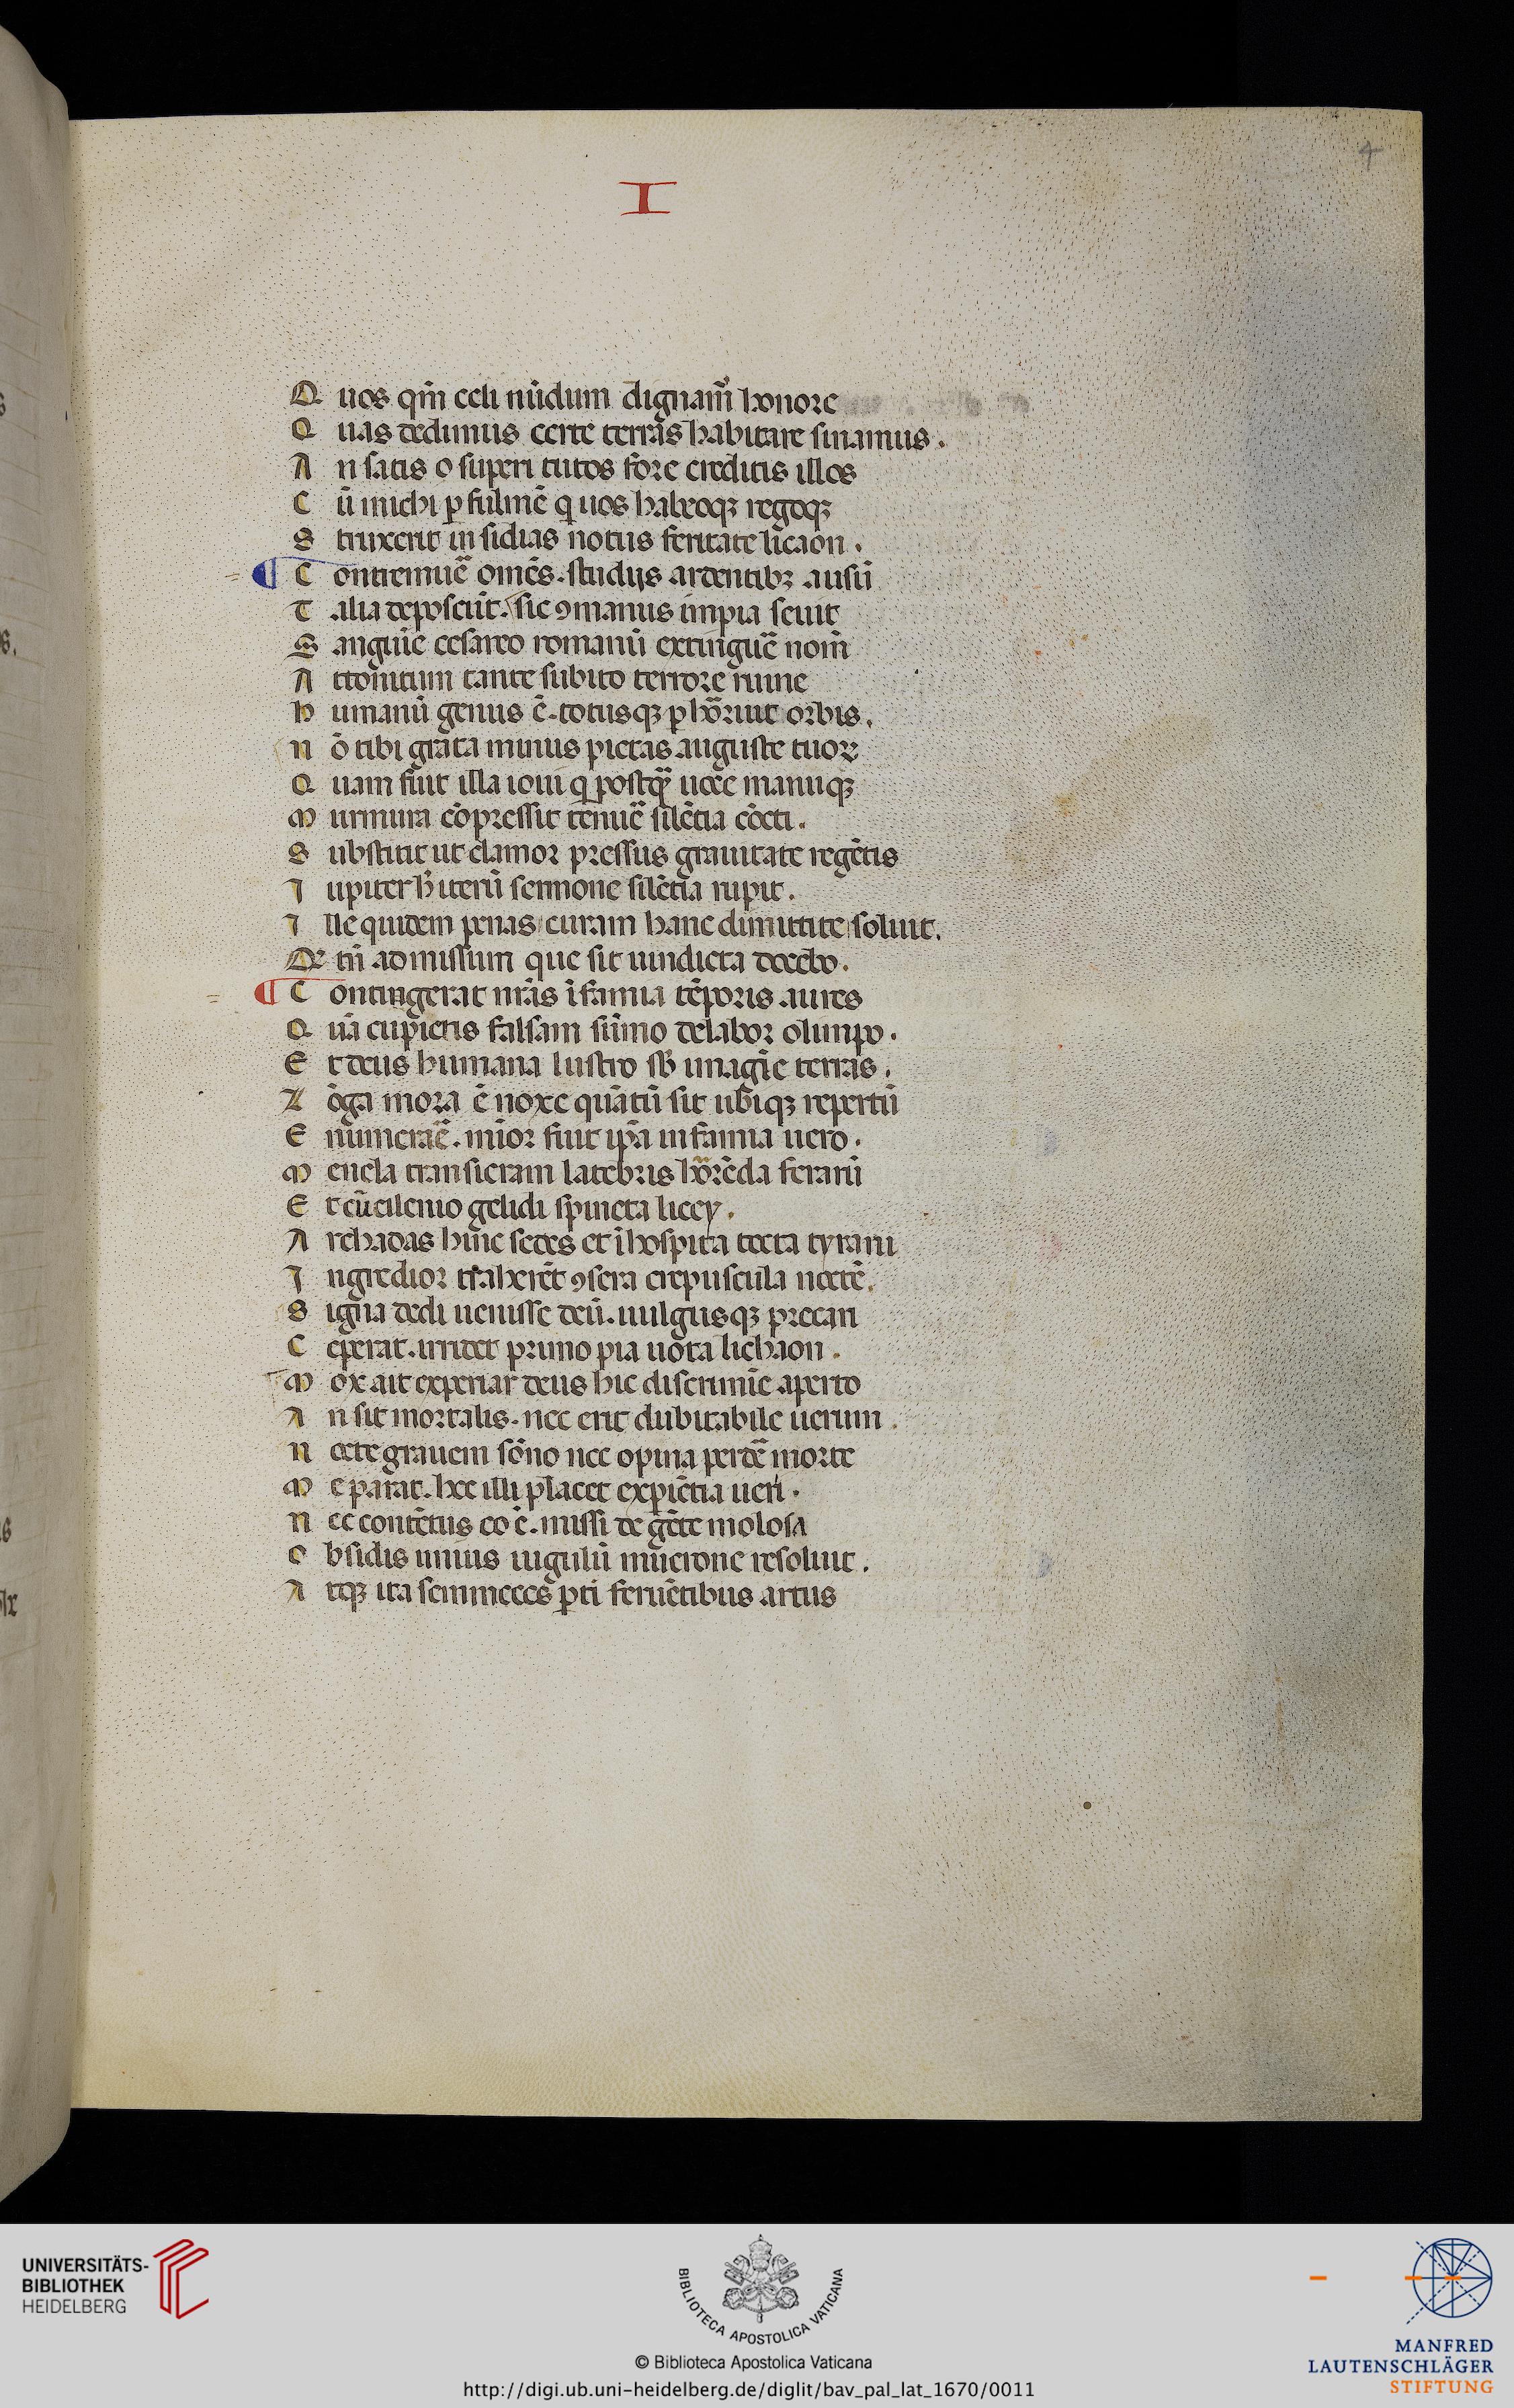 4
I
Q uos qm̄ celi nūdum dignam᷑ honore
Q uas dedimus certe terras habitare sinamus.
A n satis o superi tutos fore creditis illos
C ū michi ꝑ fulmē q̇ uos habeoqꝫ regoqꝫ
S truxerit insidias notus feritate licaon.
¶ C ontremuē omēs. studijs ardentibꝫ ausū
T alia deposcūt. sic ꝯmanus impia seuit
S anguīe cesareo romanū extinguē̄ nom̄
A ttonitum tante subito terrore ruine
H umanū genus ē. totusqꝫ ꝑhorruit orbis.
N ō tibi grata minus pietas auguste tuoꝝ
Q uam fuit illa ioui q̇ postq̄ uoce manuqꝫ
M urmura cōpressit tenuē silētia cōcti.
S ubstitit ut clamor pressus grauitate regētis
I upiter h̄ iterū sermone silētia rupit.
I lle quidem penas curam hanc dimittite soluit.
Q tn̄ admissum que sit uindicta docebo.
¶ C ontingerat nr̄as īfamia tēporis aures
Q uā cupiens falsam sūmo delabor olimpo.
E t deus humana lustro sb̄ imagīe terras.
L ōga mora ē noxe quātū sit ubiqꝫ repertū
E numerāē. mīor fuit ip̄a infamia uero.
M enela transieram latebris horrēda ferarū
E t cū cilenio gelidi spineta licey.
A rchadas hinc sedes et īhospita tecta tyrani
I ngredior traherēt ꝯsera crepuscula noctē.
S igna dedi uenisse deū. uulgusqꝫ precari
C eperat. irridet primo pia uota lichaon.
M ox ait experiar deus hic discrimīe aperto
A n sit mortalis. nec erit dubitabile uerum.
N octe grauem sōno nec opina perdē̄ morte
M e parat. hec illi placet exꝑiētia ueri.
N ec contētus eo ē. missi de gēte molosa
O bsidis unius iugulū mucrone resoluit.
A tqꝫ ita semineces ꝑti feruētibus artus
UNIVERSITÄTS-
BIBLIOTHEK
HEIDELBERG
BIBLIOTECA APOSTOLICA VATICANA
© Biblioteca Apostolica Vaticana
http://digi.ub.uni-heidelberg.de/diglit/bav_pal_lat_1670/0011
MANFRED
LAUTENSCHLÄGER
STIFTUNG